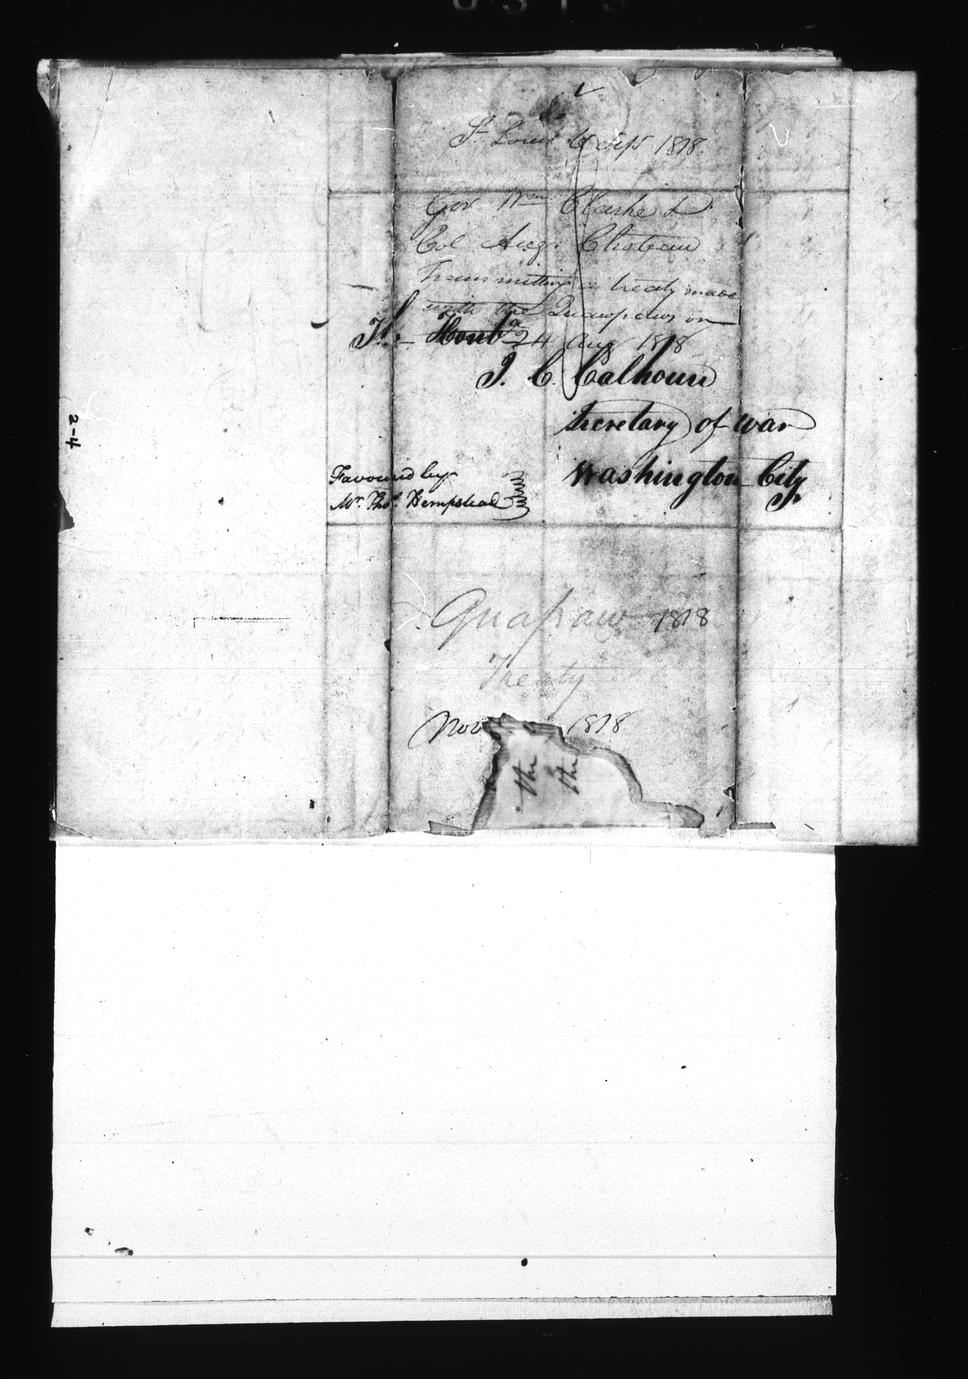 St Louis 6 Sept 1818.
Gov. Wm Clarke &
Col Aug. Choteau
Transmitting a treaty made
with the Quawpaws on
24 Aug 1818
The Honbe
J. C. Calhoun
Secretary of War
Washington City
Favoured by
Mr. Thos. Hempstead
Quapaw 1818
Treaty
Nov 1818
the
the
2-4